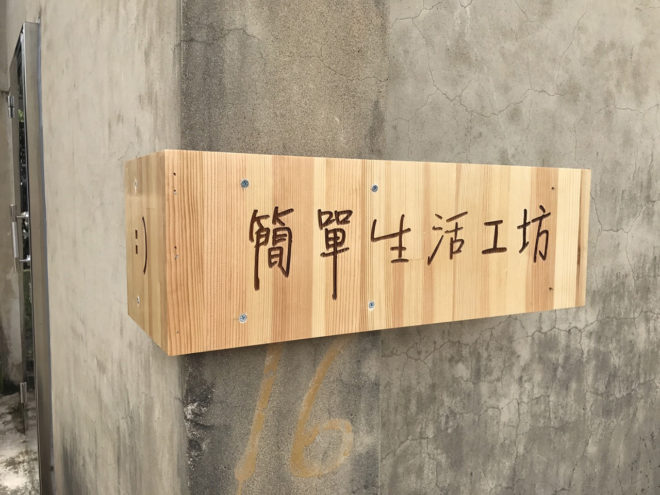 :)
簡單生活工坊
16